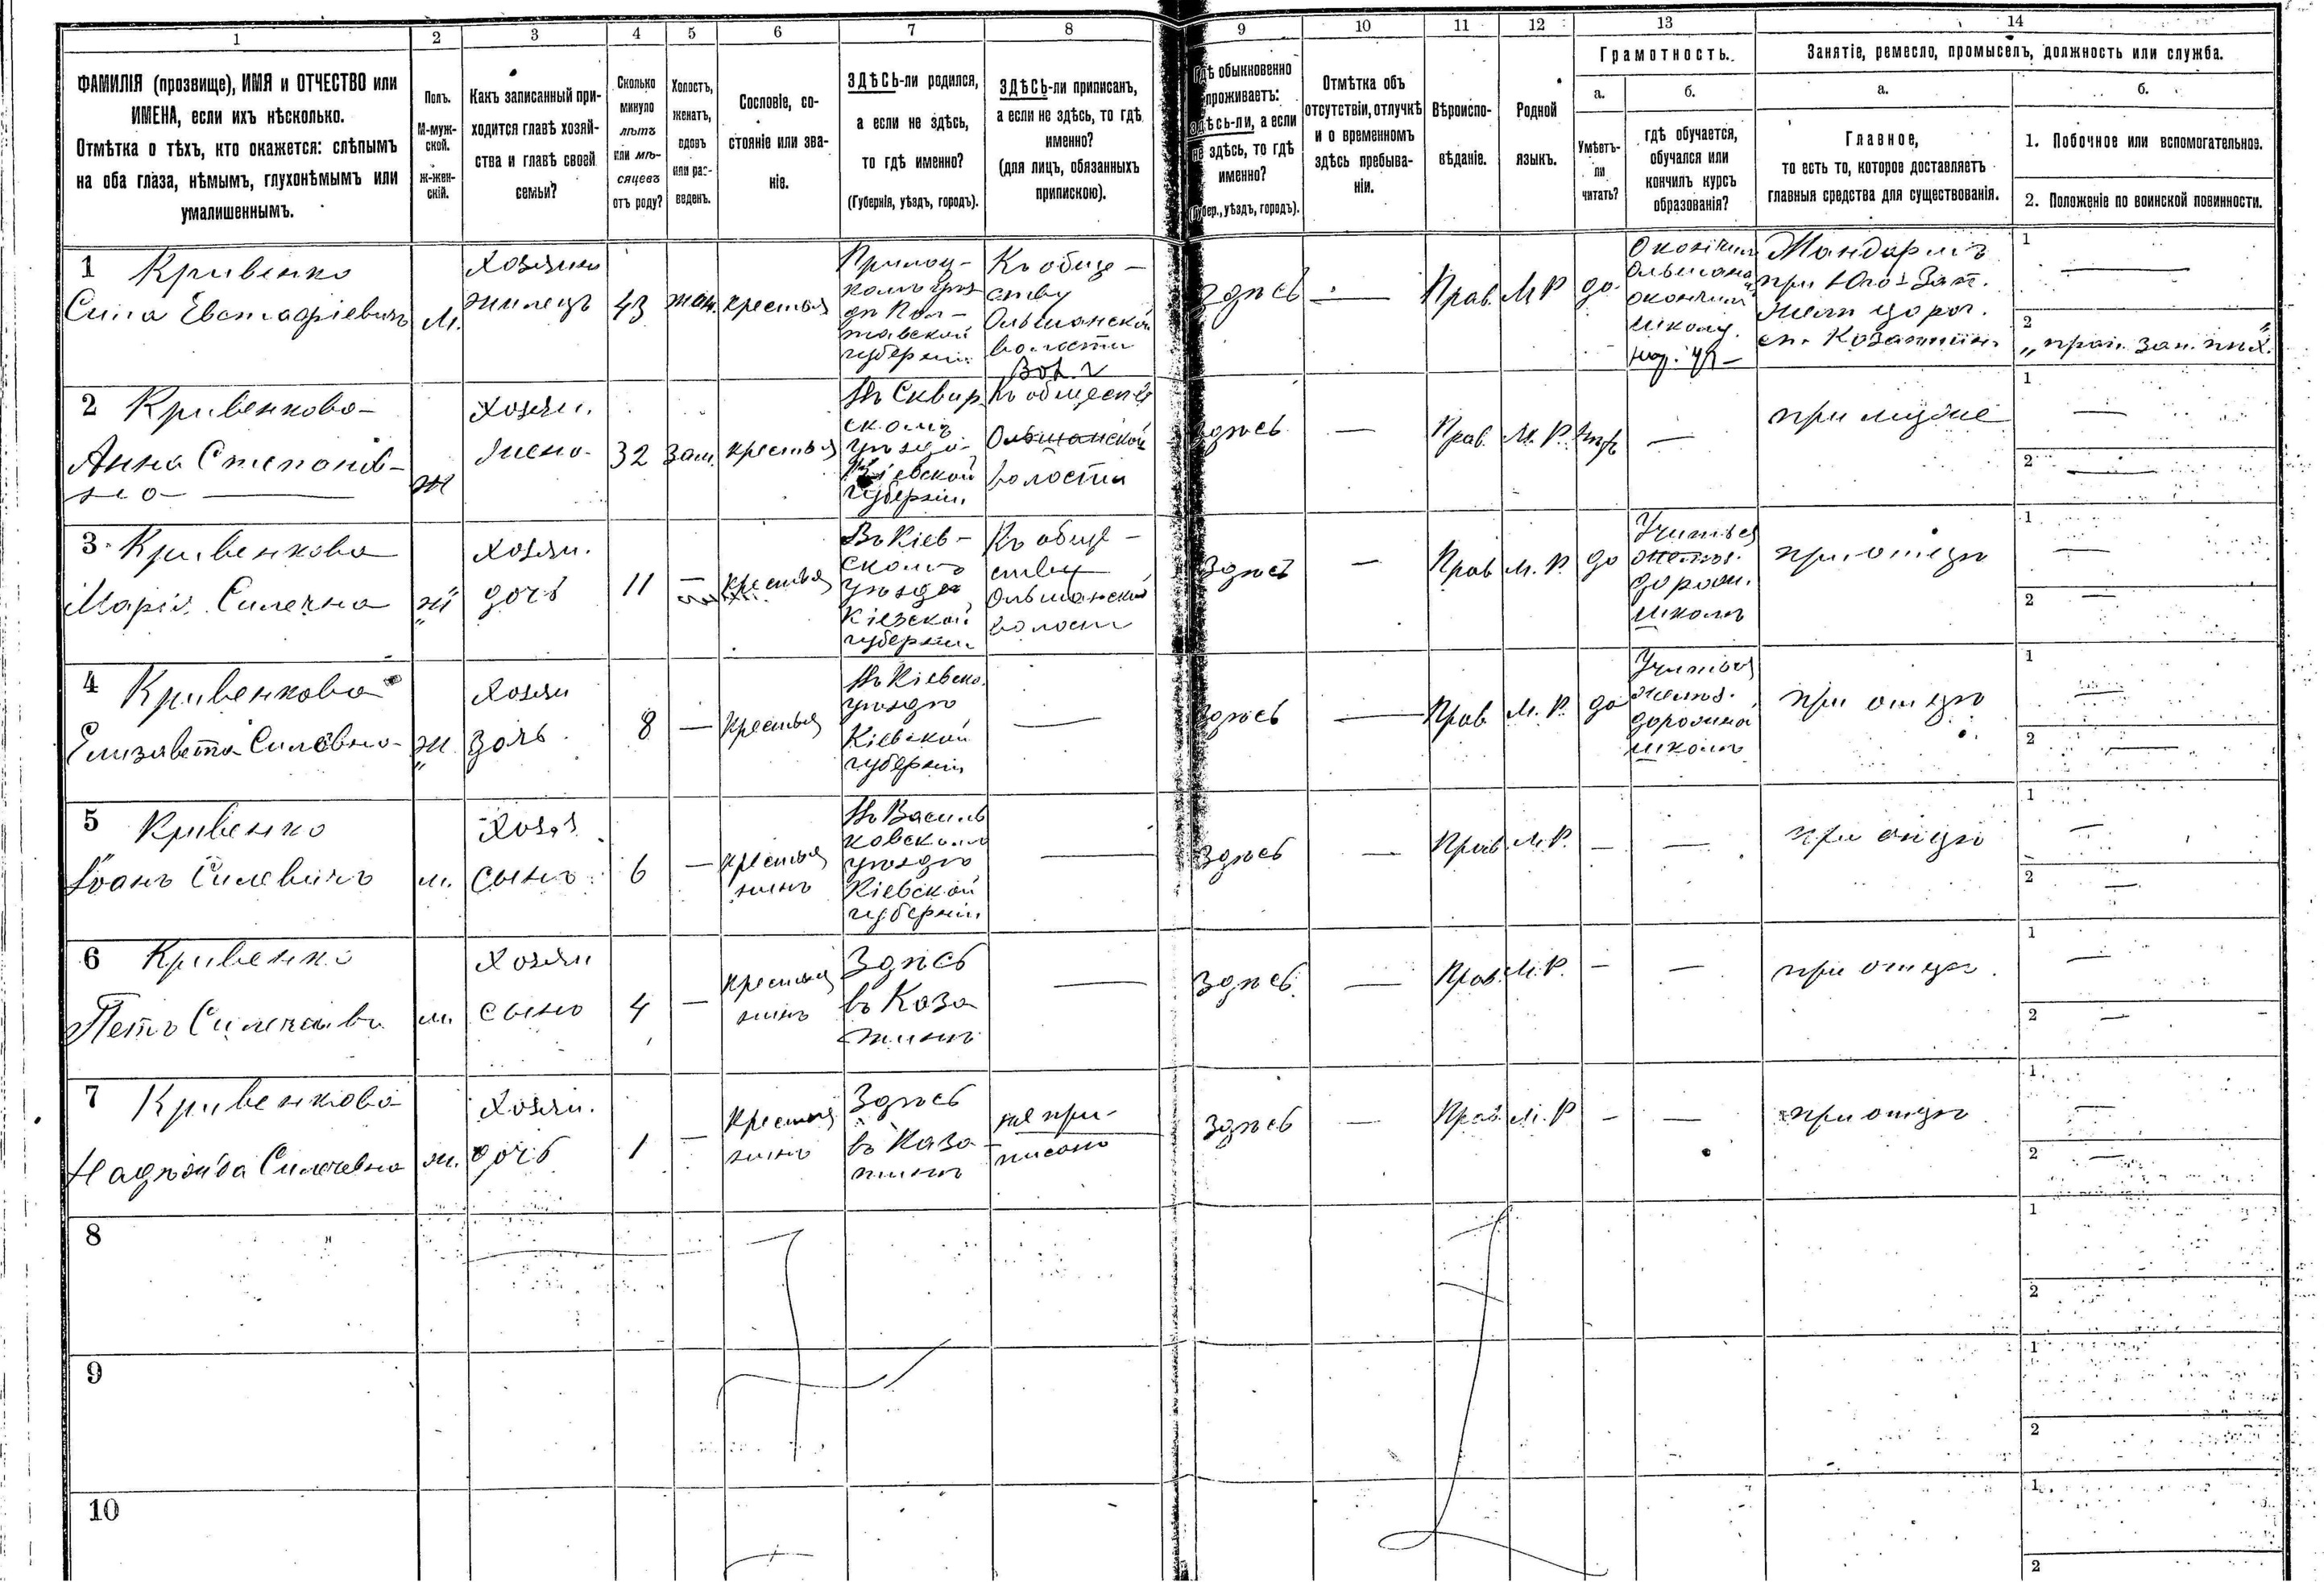 1 2 3 4 5 6 7 8 9 10 11 12 13 14
ФАМИЛІЯ (прозвище), ИМЯ и ОТЧЕСТВО или
ИМЕНА, если ихъ нѣсколько.
Отмѣтка о тѣхъ, кто окажется: слѣпымъ
на оба глаза, нѣмымъ, глухонѣмымъ или
умалишеннымъ.
Полъ.
М-муж-
ской.
ж-жен-
скій.
Какъ записанный при-
ходится главѣ хозяй-
ства и главѣ своей
семьи?
Сколько
минуло
лѣтъ
или мѣ-
сяцевъ
отъ роду?
Холостъ,
женатъ,
вдовъ
или раз-
веденъ.
Сословіе, со-
стояніе или зва-
ніе.
ЗДѢСЬ-ли родился,
а если не здѣсь,
то гдѣ именно?
(Губернія, уѣздъ, городъ).
ЗДѢСЬ-ли приписан,
а если не здѣсь, то гдѣ
именно?
(для лицъ, обязанныхъ
припискою).
Гдѣ обыкновенно
проживаетъ:
здѣсь-ли, а если
не здѣсь, то гдѣ
именно?
(Губер., уѣздъ, городъ).
Отмѣтка объ
отсутствіи, отлучкѣ
и о временномъ
здѣсь пребыва-
ніи.
Вѣроиспо-
вѣданіе.
Родной
языкъ.
Грамотность.
а.
Умѣетъ-
ли
читать?
б.
гдѣ обучается,
обучался или
кончилъ курсъ
образованія?
Занятіе, ремесло, промыселъ, должность или служба.
а.
Главное,
то есть то, которое доставляетъ
главныя средства для существованія.
б.
1. Побочное или вспомогательное.
2. Положеніе по воинской повинности.
1 Кривенко
Сила Евстафіевичъ
м.
Хозяинъ
жилецъ
43
жен.
крестья
Полтавской
губерніи
Къ обще-
ству
Ольшанской
волости
Здѣсь
—
Прав.
М Р
да
школу
Жандармъ
при Юго-Зап.
жел. дорог.
ст. Козатинъ
1 —
2
2 Кривенкова
Анна Степанов-
на
ж
хозяи.
жена
32
зам.
крестья
Въ Сквир
скомъ
уѣздѣ
Кіевской
губерніи
Къ обществ
Ольшанской
волости
Здѣсь
—
Прав.
М. Р.
—
при мужѣ
1 —
2 —
3 Кривенкова
Марія Силечна
ж
хозяи.
дочь
11
—
крестья
Въ Кіев-
скомъ
уѣздѣ
Кіевской
губерніи
Къ обще-
ству
Ольшанской
волости
Здѣсь
—
Прав
М. Р.
да
Учится
желѣз.
дорож.
школѣ
при отцѣ
1 —
2 —
4 Кривенкова
Елизавета Силевна
ж
хозяи
дочь
8
—
крестья
Въ Кіевско.
уѣздѣ
Кіевской
губерніи
—
Здѣсь
—
Прав
М. Р.
да
Учится
желѣз.
дорожной
школѣ
при отцѣ
1 —
2 —
5 Кривенко
Іванъ Силевичъ
м.
Хозя
сынъ
6
—
крестья
нинъ
Въ Василь
ковскомъ
уѣздѣ
Кіевской
губерніи
—
Здѣсь
—
Прав.
М. Р.
—
—
при отцѣ
1 —
2 —
6 Кривенко
м.
хозяи
сынъ
4
—
крестья
нинъ
Здѣсь
въ Коза
тинѣ
—
Здѣсь
—
Прав.
М. Р.
—
—
при отцѣ
1 —
2 —
7 Кривенкова
Надѣжда Силечевна
ж.
хозяи.
дочь
1
—
крестья
нинъ
Здѣсь
въ Каза
тинѣ
не при-
писано
здѣсь
—
Прав.
М. Р
—
—
при отцѣ
1 —
2 —
8
1
2
9
1
2
10
1
2